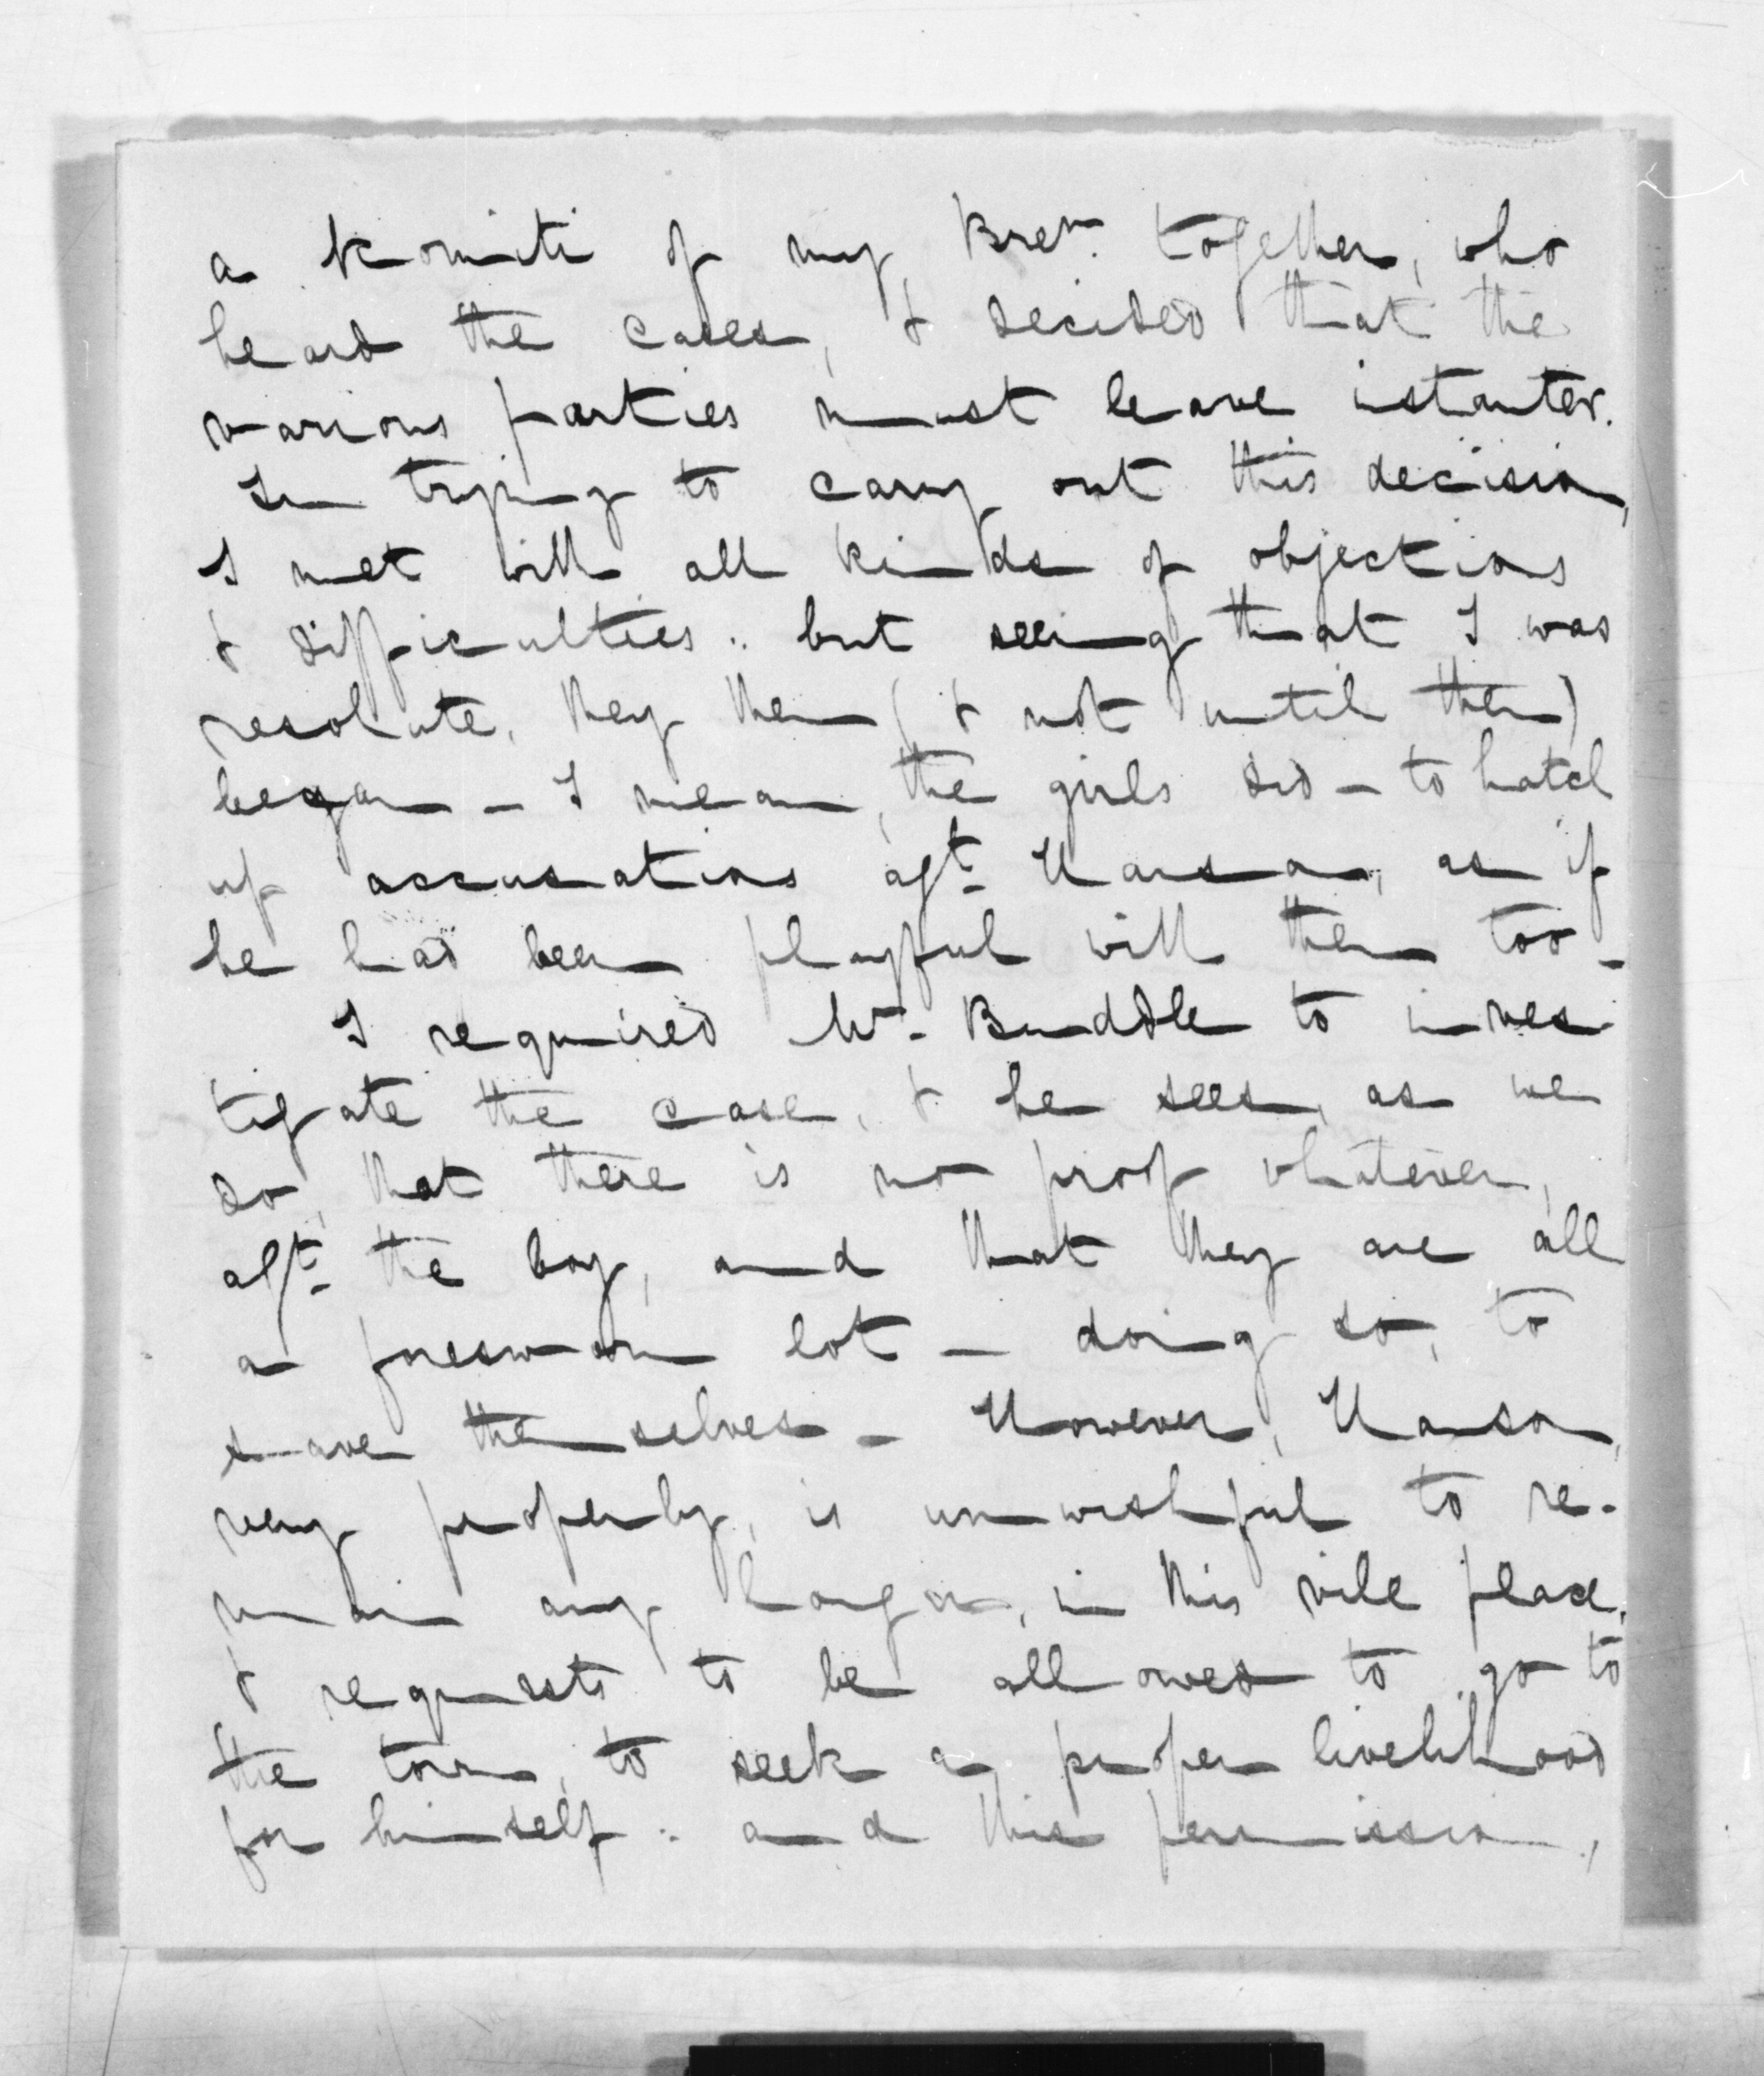 a komiti of my Bren. together, who
heard the cases, & decided that the
various parties must leave instanter.
In trying to carry out this decision,
I met with all kinds of objections
& difficulties: but seeing that I was
resolute, they then (& not until then)
began – I mean, the girls did – to hatch
up accusations agt. Hanson, as if
he had been playful with them too –
I required Mr. Buddle to inves-
tigate the case, & he sees, as we
do, that there is no proof whatever,
agt. the boy, and that they are all
a foresworn lot – doing so, to
save themselves – However, Hanson,
very properly, is unwishful to re-
main any longer, in this vile place,
& requests to be allowed to go to
the town, to seek a proper livelihood
for himself: and this permission,